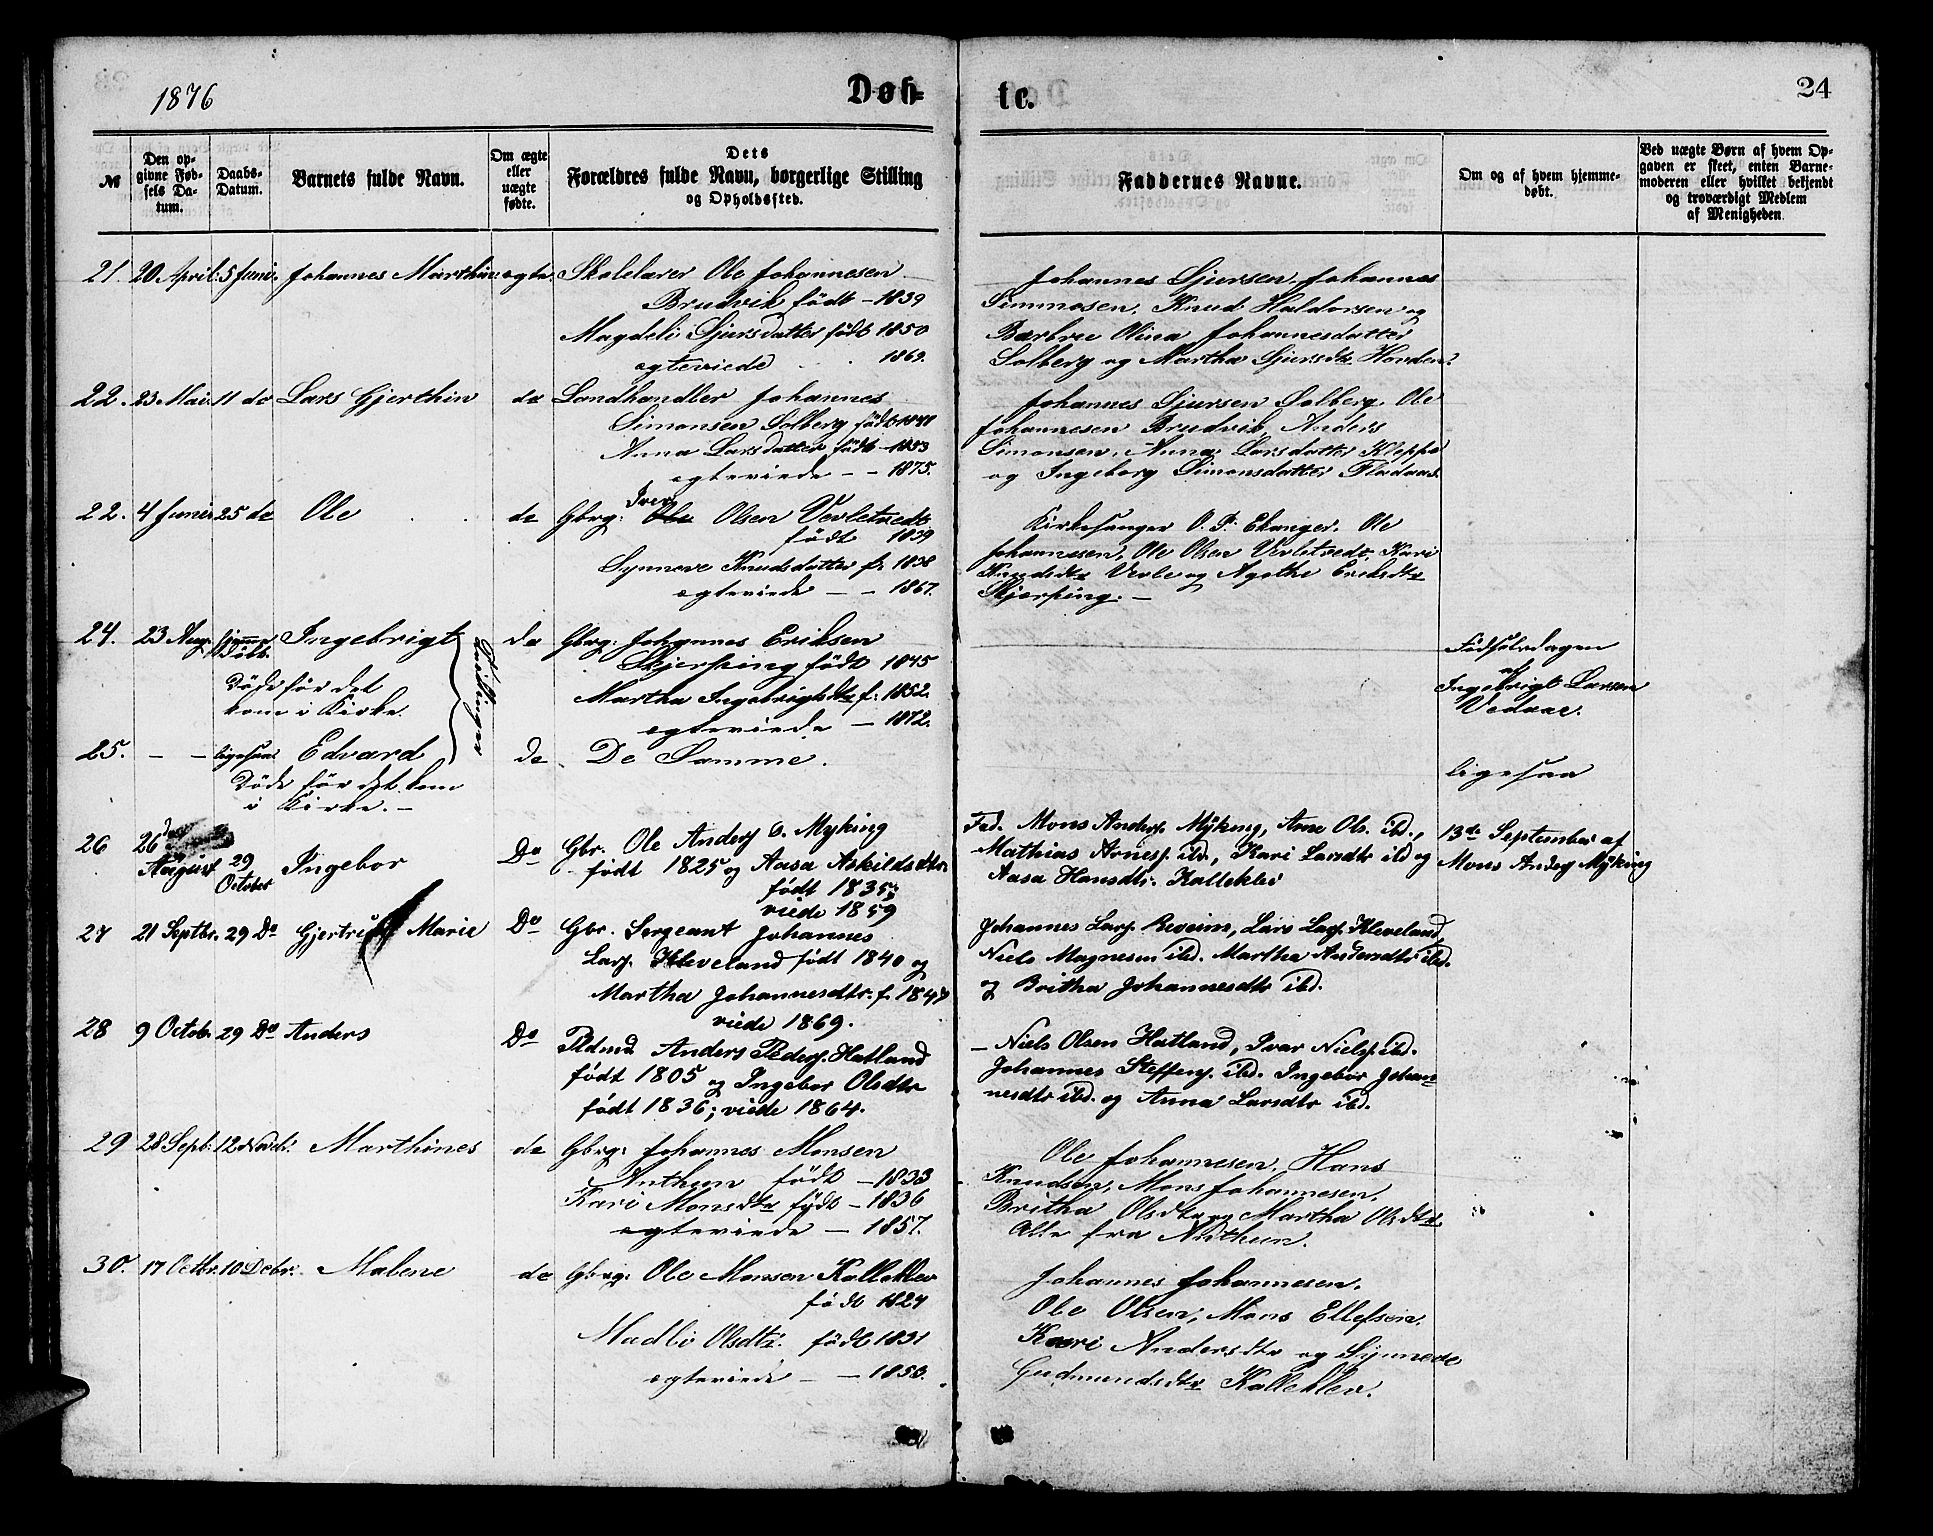 1876
Døb-
te.
24
№
Den op-
givne Fød-
sels Da-
tum.
Daabs-
Datum.
Barnets fulde Navn.
Om ægte
eller
uægte
fødte.
Dets
Forældres fulde Navn, borgerlige Stilling
og Opholdssted.
Faddernes Navne.
Om og af hvem hjemme-
døbt.
Ved uægte Børn af hvem Op-
gaven er skeet, enten Barne-
moderen eller hvilket bekjendt
og troværdigt Medlem
af Menigheden
21. 20 April. 5 Juni. Johannes Marthin egte. Skolelærer Ole Johannesen
Brudvik födt - 1839
Magdeli Sjursdatter födt 1850
egteviede 1869.
Johannes Sjursen. Johannes
Simonsen, Knud Haldorsen og
Barbree Olina Johannesdatter
Solberg og Martha Sjursdtr
22. 23 Mai. 11 do Lars Gjerthin do Landhandler Johannes
Simonsen Solberg födt
Anna Larsdatter födt - 1853
egteviede - - 1875.
Johannes Sjursen Solberg. Ole
Johannesen Brudvik, Anders
Simonsen, Anna Larsdatter Kleppe
og Ingeborg Simonsdatter
22. 4 Juni 25 do Ole do Gbrg: Iver Ole Olsen Verletvedt
födt 1839
Synneve Knudsdatter f: 1838
egteviede - - 1867.
Kirkesanger O. P. Ekanger. Ole
Johannesen, Ole Olsen Verletvedt, Kari
Knudsdtr Verle og Agathe Eriksdtr
Skjerping. -
24. 23 Aug. hjemme
döbt. Ingebrigt do Gbrg: Johannes Eriksen
Skjerping födt 1845
Martha Ingebrigtsdtr f: 1852.
egteviede - 1872.
Döde för det
kom i Kirke.
Tvillinger
Fødselsdagen
af
Ingebrigt Larsen
Vedaae.
25. - - ligesaa. Edvard do De Samme.
Döde för det kom
i Kirke. -
ligesaa
26 26
August 29
October Ingebor Do Gbr. Ole Anders. O. Myking
født 1825 og Aasa Askildsdtr.
født 1835;
viede 1859
Fad. Mons Anders. Mÿking, Arne Ols. ibd.,
Mathias Arnes. ibd., Kari Larsdtr ibd og
Aasa Hansdtr. Kalleklei
13de September af
Mons Anders Mÿking
27 21 Septbr. 29 Do Gjertrud Marie Do Gbr. Sergeant Johannes
Lars. Kleveland født 1840 og
Martha Johannesdtr. f. 1847
viede 1869.
Johannes Lars. Revheim, Lars Lars. Kleveland,
Niels Magnesen ibd. Martha Andersdtr ibd.
og Britha Johannesdtr ibd.
28 9 Octob. 29 Do Anders Do Pldmd Anders Peders. Hatland
født 1805 og Ingebor Olsdtr
født 1836; viede 1864.
- Niels Olsen Hatland, Ivar Niels. ibd.
Johannes Steffens. ibd. Ingebor Johan-
nesdtr ibd. og Anna Larsdtr ibd.
29 28 Sept: 12 Novbr. Marthines do Gbrg: Johannes Monsen
Anthun födt - 1833
Kari Monsdtr födt - 1836
egteviede - 1857.
Ole Johannesen, Hans
Knudsen, Mons Johannesen,
Britha Olsdtr og Martha Olsdtr
Alle fra Anthun.
30. 17 Octbr. 10 Debr. Malene do Gbrg: Ole Monsen Kalleklev
födt 1827
Madli Olsdtr. födt 1831
egteviede - - 1850.
Johannes Johannesen,
Ole Olsen, Mons Ellefsen,
Kari Andersdtr og Synneve
Gudmundsdtr Kalleklev.